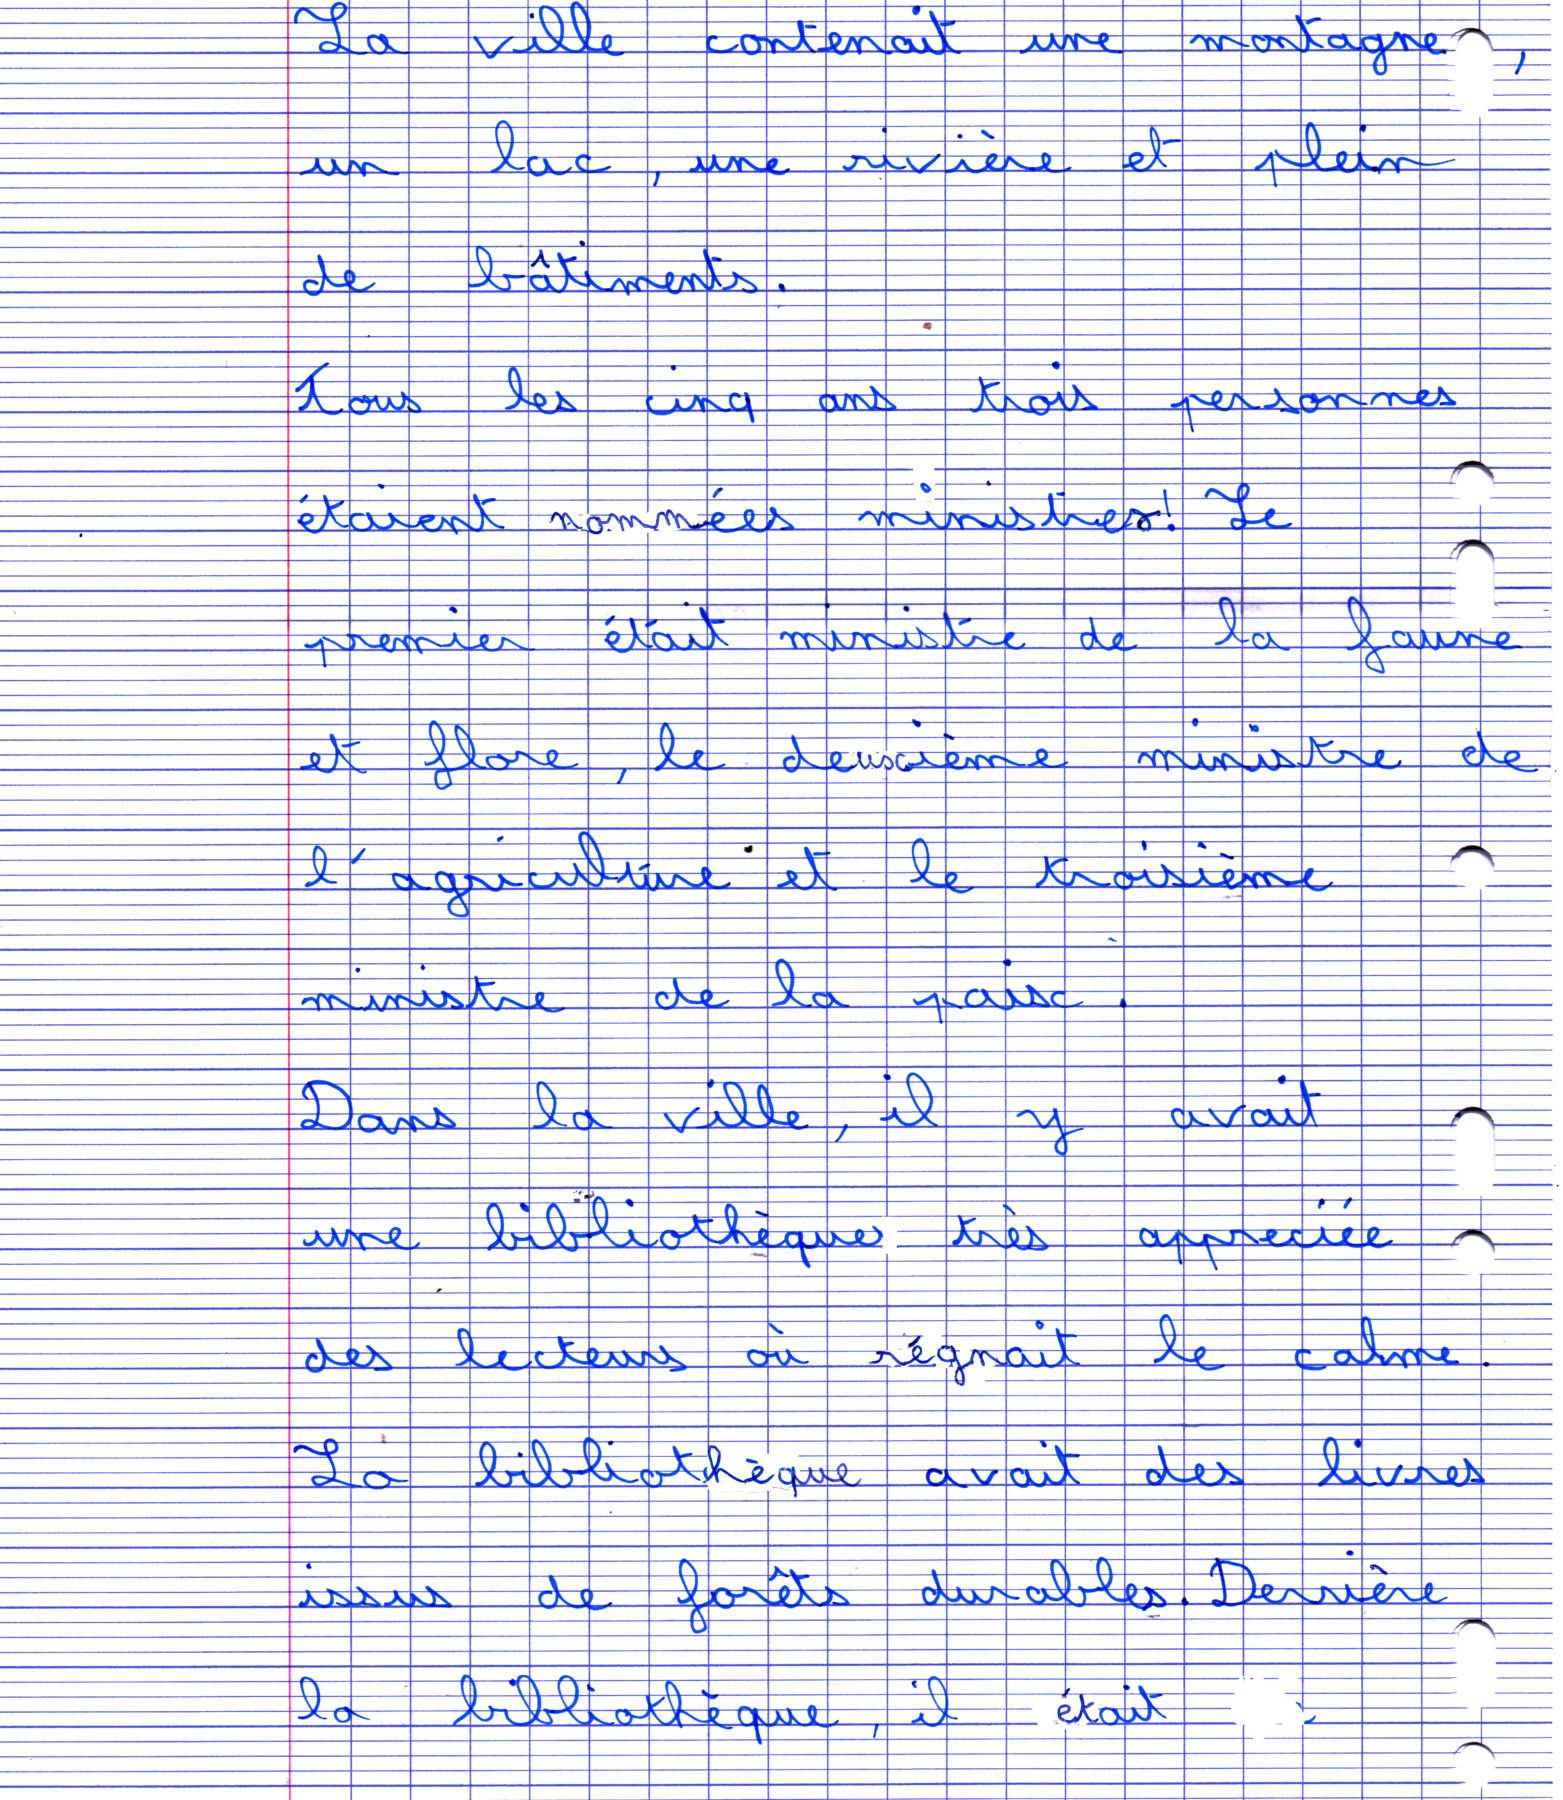 La ville contenait une montagne,
un lac, une rivière et plein
de bâtiments.
Tous les cinq ans trois personnes
étaient nommées ministres! Le
premier était ministre de la faune
et flore, le deuxième ministre de
l'agriculture et le troisième
ministre de la paix.
Dans la ville, il y avait
une bibliothèque très appreciée
des lecteurs où régnait le calme.
La bibliothèque avait des livres
issus de forêts durables. Derrière
la bibliothèque, il était